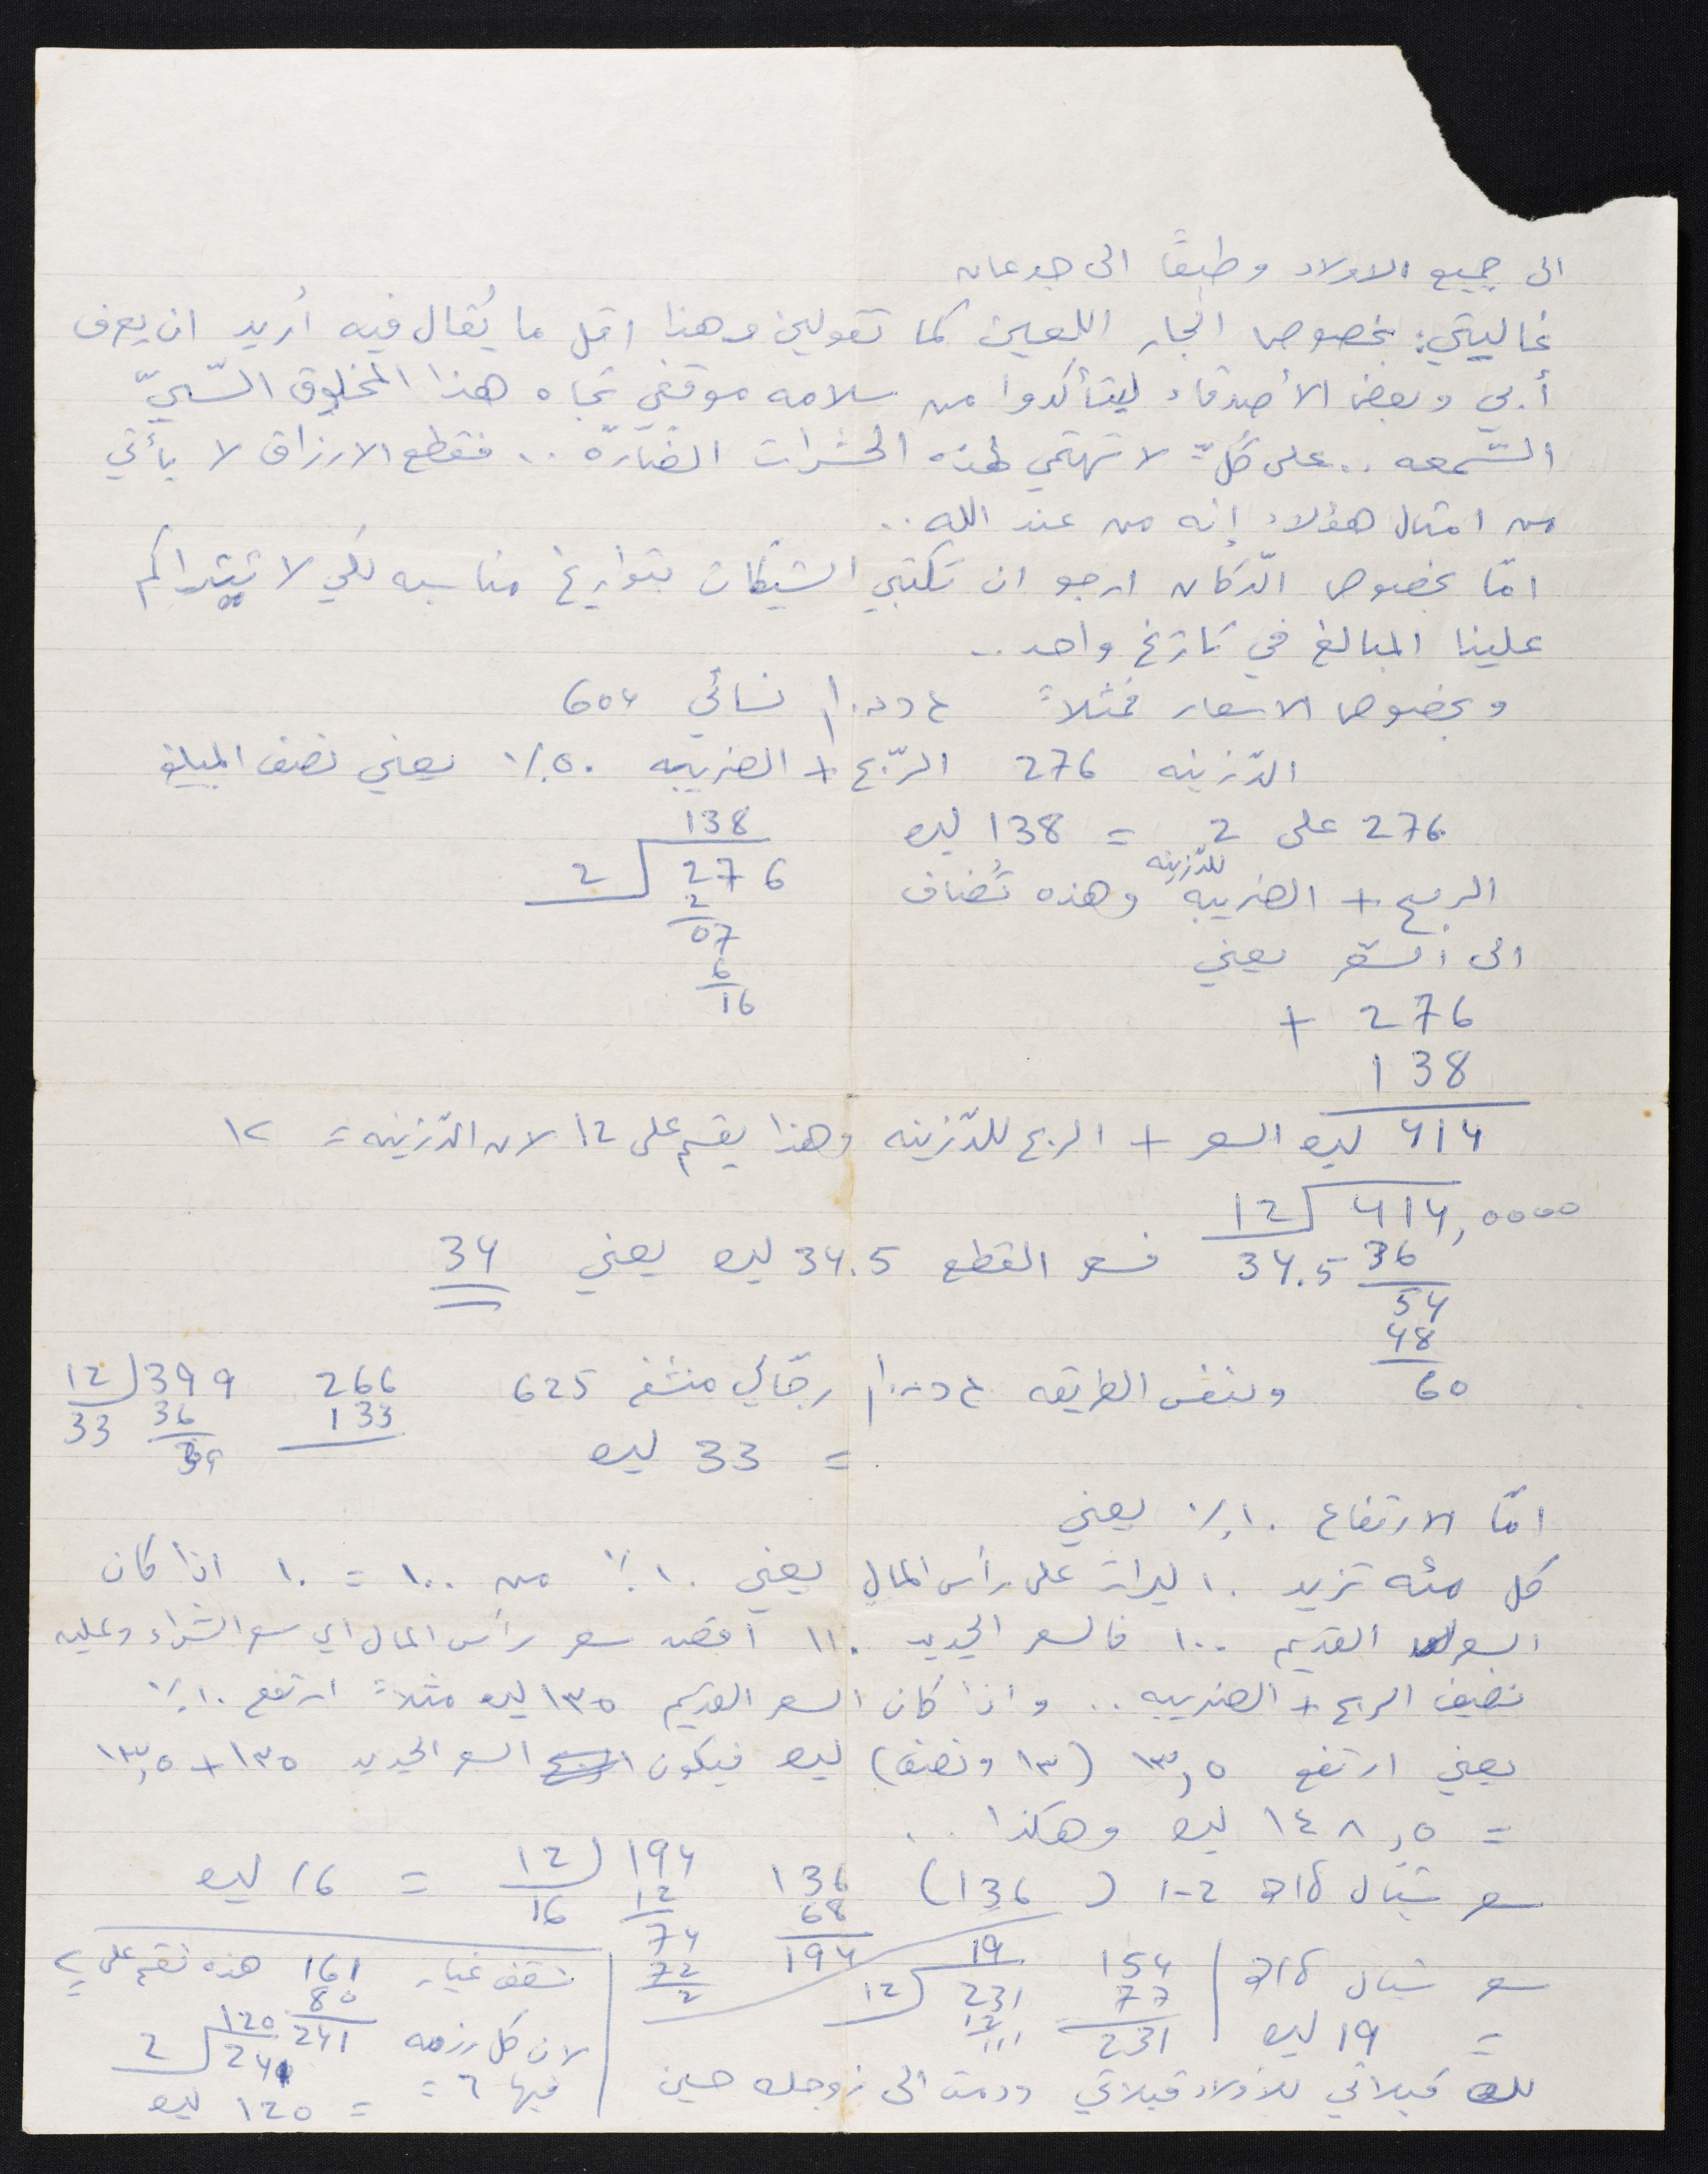 الى جميع الاولاد وطبعًا الى جدعان
غاليتي: بخصوص الجار اللعين كما تقولين وهذا اقل ما يُقال فيه أريد ان يعرف
أبي وبعض الأصدقاء ليتأكدوا من سلامه موقفي تجاه هذا المخلوق السّيّ
السّمعه .. على كلٍّ لا تهتمي لهذه الحشرات الضّارّه .. فقطع الارزاق لا يأتي
من امثال هؤلاء إنه من عند الله ..
امّا بخصوص الدّكان ارجو ان تكتبي الشيكات بتواريخ مناسبه لكي لا تتراكم
علينا المبالغ في تاريخ واحد ..
وبخصوص الاسعار فمثلاً نسائي 604
الدّزينه 276 الرّبح + الضريبه ٥٠٪ يعني نصف المبلغ
276 على 2 = 138 ليره
138
2 276
2
07
6
16
الربح + الضريبه للدّزينه وهذه تُضاف
الى السّعر يعني
276 +
138
414 ليره السعر + الربح للدّزينه وهذا يقسم على 12 لان الدّزينه = ١٢
12 414,0000
34.5 36
54
48
60
فسعر القطع 34.5 ليره يعني 34
وبنفس الطريقه رجّالي 625
= 33 ليره
266
133
12 399
33 36
39
امّا الارتفاع ١٠٪ يعني
كل مئه تزيد ١٠ ليرات على رأس المال يعني ١٠٪ من ١٠٠ = ١٠ اذا كان
السعر القديم ١٠٠ فالسعر الجديد ١١٠ اقصد سعر رأس المال اي سعر الشراء وعليه
نضيف الربح + الضريبه .. واذا كان السعر القديم ١٣٥ ليره مثلاً ارتفع ١٠٪
يعني ارتفع ١٣,٥ (١٣ ونصف) ليره فيكون السعر الجديد ١٣٥ + ١٣,٥
= ١٤٨,٥ ليره وهكذا ..
سعر 1-2 (136)
136
68
194
12 194
16 12
74
72
2
= 16 ليره
سعر
= 19 ليره
154
77
231
19
12 231
12
111
161 هذه تقسم على ٢
80
241
لان كل رزمه
فيها ٦ =
120
2 240
= 120 ليره
لك قبلاتي للأولاد قبلاتي ودمت الى زوجك حسين